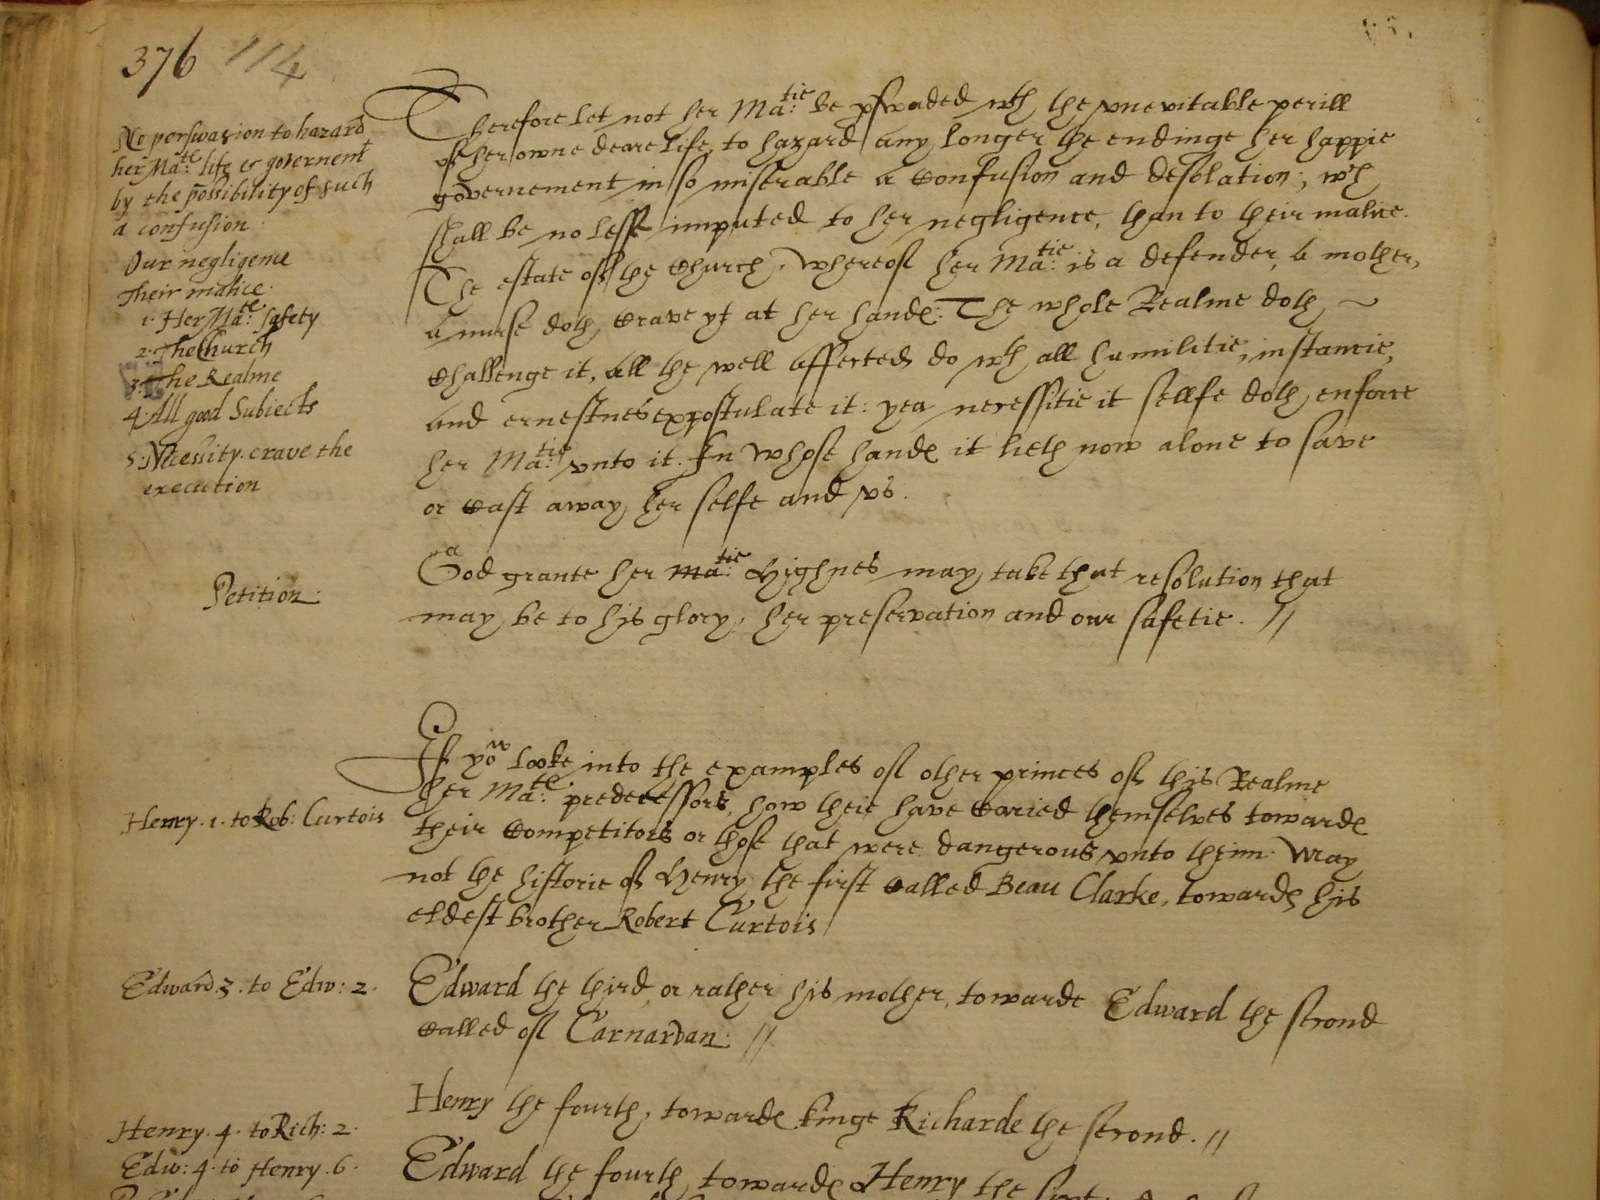 376 114
No perswasion to hazard
her Ma:te life & governent
by the possibility of such
a confusion
Our negligence
Their malice
1. Her Ma:te safety
2. The Church
3. The Realme
4. All good Subiects
5. Necessity crave the
execution
Therefore let not her Ma:tie be pswaded wth the vnevitable perill
of her owne deare life, to hazard any longer the endinge her happie
governement in so miserable a confusion and desolation; wch
shall be no lesse imputed to her negligence, than to their malice.
The estate of the Church, whereof her Ma:tie is a defender, a mother,
a nurse doth crave yt at her handes. The whole Realme doth
challenge it, all the well affected do wth all humilitie, instancie,
and ernestnes expostulate it: yea necessitie it sellfe doth enforce
her Ma:tie vnto it. In whose handes it lieth now alone to save
or cast away her selfe and vs.
Petition
God grante her Ma:tie Highnes may take that resolution that
may be to his glory, her preservation and our safetie. //
If yow looke into the examples of other princes of this Realme
her Ma:te predecessors, how their have caried themselves towardes
Henry. 1. to Rob: Curtois
their competitors or those that were dangerous vnto theim. Way
not the historie of Henry the first called Beau Clarke, towardes his
eldest brother Robert Curtois
Edward. 3. to Edw: 2.
Edward the third or rather his mother, towarde Edward the second
called of Carnarvan. //
Henry. 4. to Rich: 2.
Henry the fourth, towardes kinge Richarde the second. //
Edw: 4. to Henry. 6.
Edward the fourth towardes Henry the sixt